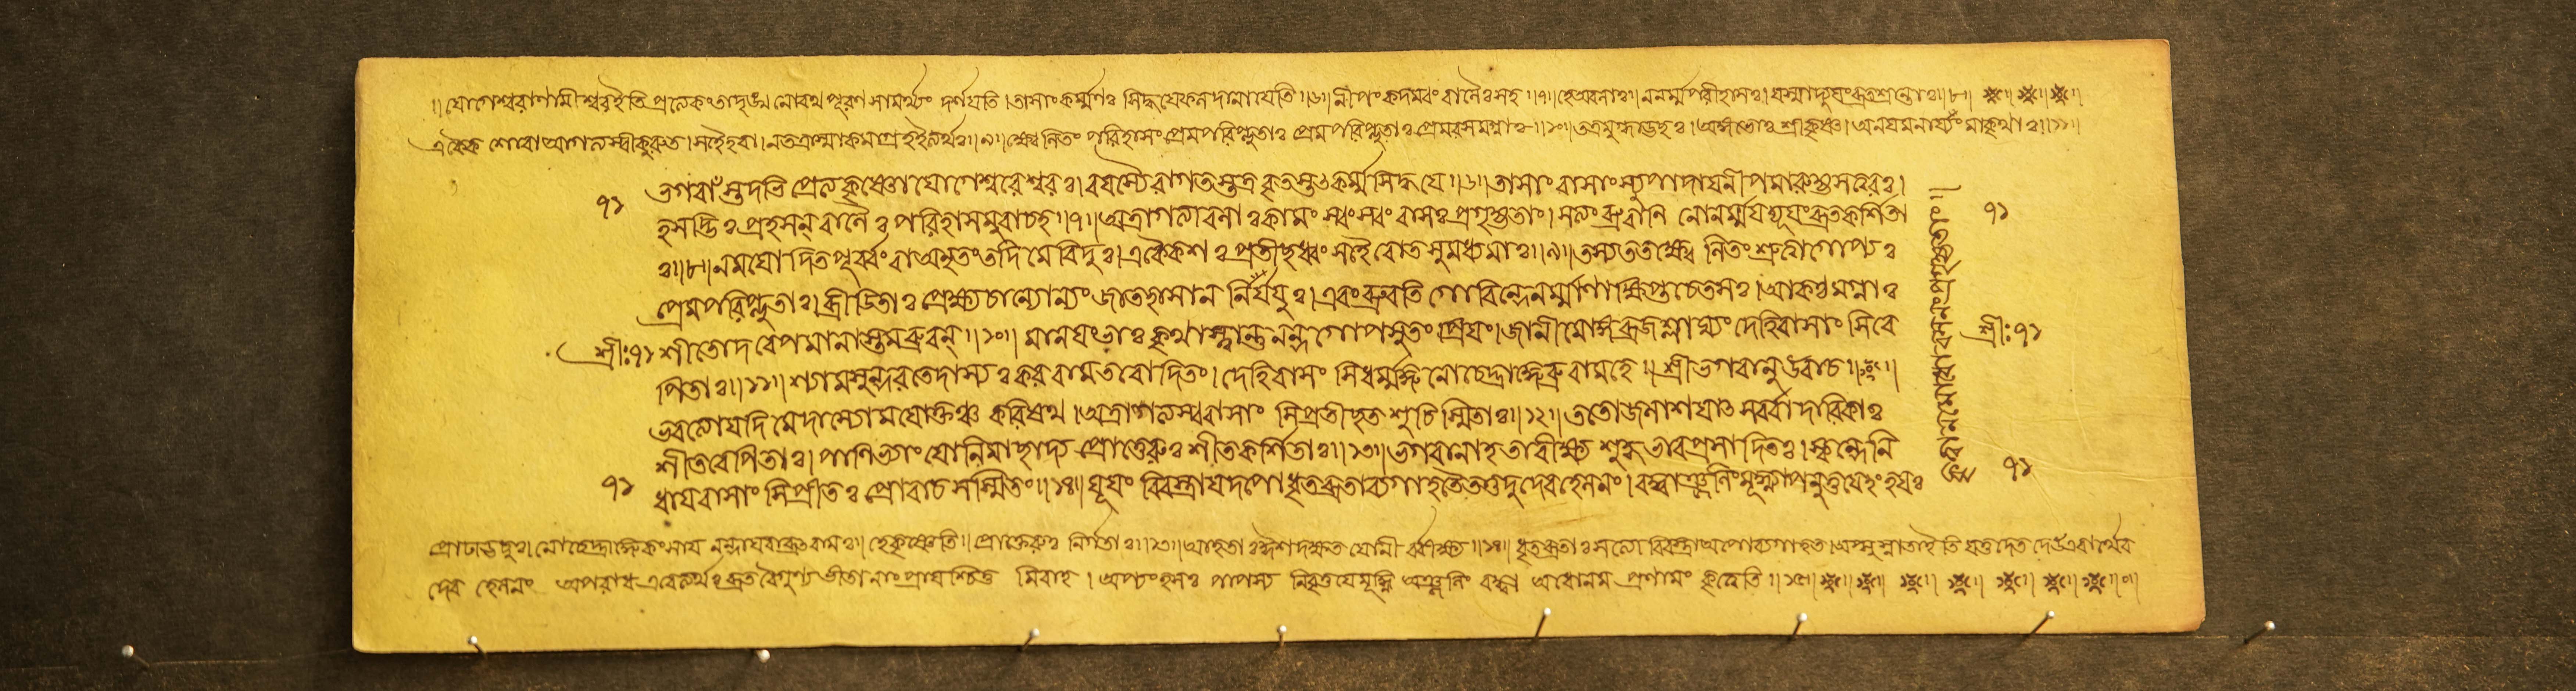 ।।যোগেশ্বরাণামীশ্বরইতি প্রত্যেকং তাদৃঙ্মনোরথ পূরণ সামর্থ্যং দর্শযতি।তাসাংকর্ম্মণঃ সিদ্ধযেফলদানাযেতি।।৬।।নীপংকদম্বং বালৈঃসহ।।৭।।হেঅবলাঃ।। ননর্ম্মপরীহাসঃ।যস্মাদ্যূযংব্রতশ্রান্তাঃ।।৮।।
একৈক শোবাআগত্যস্বীকুরুত।সহৈববা।নতত্রাস্মাকমাগ্রহইত্যর্থঃ।।৯।।ক্ষ্বেলিতং পরিহাসং প্রেমপরিপ্লুতাঃ প্রেমরসমগ্নাঃ।।১০।।
৭১ ভগবাঁস্তদভি প্রেত্যকৃষ্ণোযোগেশ্বরেশ্বরঃ।বযস্যৈরাগতস্তত্র বৃতস্তৎকর্ম্মসিদ্ধযে।।৬।।তাসাংবাসাংস্যুপাদাযনীপমারুহ্যসত্বরঃ।
হসদ্ভিঃপ্রহসন্ বালৈঃ পরিহাসমুবাচহ।।৭।।অত্রাগত্যাবলাঃকামং স্বংস্বং বাসঃপ্রগৃহ্যতাং।সত্যংব্রুবাণি নোনর্ম্মযদ্যূযংব্রতকর্শিতা ৭১
ঃ।।৮।।নমযোদিতপূর্ব্বংবাঅনৃতংতদিমেবিদুঃ।একৈকশঃপ্রতীছধ্বং সহৈবোতসুমধ্যমাঃ।।৯।।তস্যতৎক্ষ্বেলিতংশ্রুত্বাগোপ্যঃ
প্রেমপরিপ্লুতাঃ।ব্রীডিতাঃপ্রেক্ষ্যচান্যোন্যংজাতহাসান নির্যযুঃ।এবংব্রুবতি গোবিন্দেনর্ম্মণাক্ষিপ্তচেতসঃ।আকণ্ঠমগ্নাঃ
শ্রীঃ৭১ শীতোদবেপমানাস্তমব্রুবন্।।১০।।মানযংভোঃকৃথাস্ত্বান্তুনন্দগোপসুতংপ্রিযং।জানীমোঙ্গব্রজশ্লাঘ্যং দেহিবাসাংসিবে শ্রীঃ৭১
পিতাঃ।।১১।।শ্যামসুন্দরতেদাস্যঃকরবামতবোদিতং।দেহিবাসাংসিধর্মজ্ঞনোচেদ্রাজ্ঞেব্রুবামহে।।শ্রীভগবানুউবাচ।।
ভবত্যোযদিমেদাস্যোমযোক্তঞ্চ করিষ্যথ।অত্রাগত্যস্ববাসাংসিপ্রতীছত শুচিস্মিতাঃ।।১২।।ততোজলাশযাৎ সর্ব্বাদারিকাঃ
শীতবেপিতাঃ।পাণিভ্যাংযোনিমাছাদ্য প্রোত্তেরুঃশীতকর্শিতাঃ।।১৩।।ভগবানাহতাবীক্ষ্য শুদ্ধভাবপ্রসাদিতঃ।স্কন্ধেনি
৭১ ধাযবাসাংসিপ্রীতঃপ্রোবাচসস্মিতং।।১৪।।যূযং বিবস্ত্রাযদপোধৃতব্রতাব্যগাহতৈতত্তদুদেবহেলনং।বদ্ধ্বাঞ্জলিংমূর্ধ্ন্যপনুত্তযেংহসঃ ৭১
প্রোচ্যন্তদুঃ।নোচেদ্রাজ্ঞে নন্দাযব্রুবামঃ।।হেকৃষ্ণেতি।।প্রোত্তেরুঃ নির্গতাঃ।।১৩।।আহতাঃঈশদক্ষত যোনী র্বীক্ষ্য।।১৪।।ধৃতব্রতাঃসত্যো বিবস্ত্রাঅপোব্যগাহত।অপ্সুস্নাতাইতি যত্তদেতদ্দেউএবার্থেব
দেব হেলনং অপরাধ এবেত্যর্থঃব্রত বৈগুণ্য ভীতানাংপ্রাযশ্চিত্ত মিবাহ। অস্যাংহসঃ পাপস্য নিবৃত্তযেমূর্ধ্নি অঞ্জলিং বদ্ধ্বা অধোনম প্রণামং কৃত্বেতি।।১৫।।